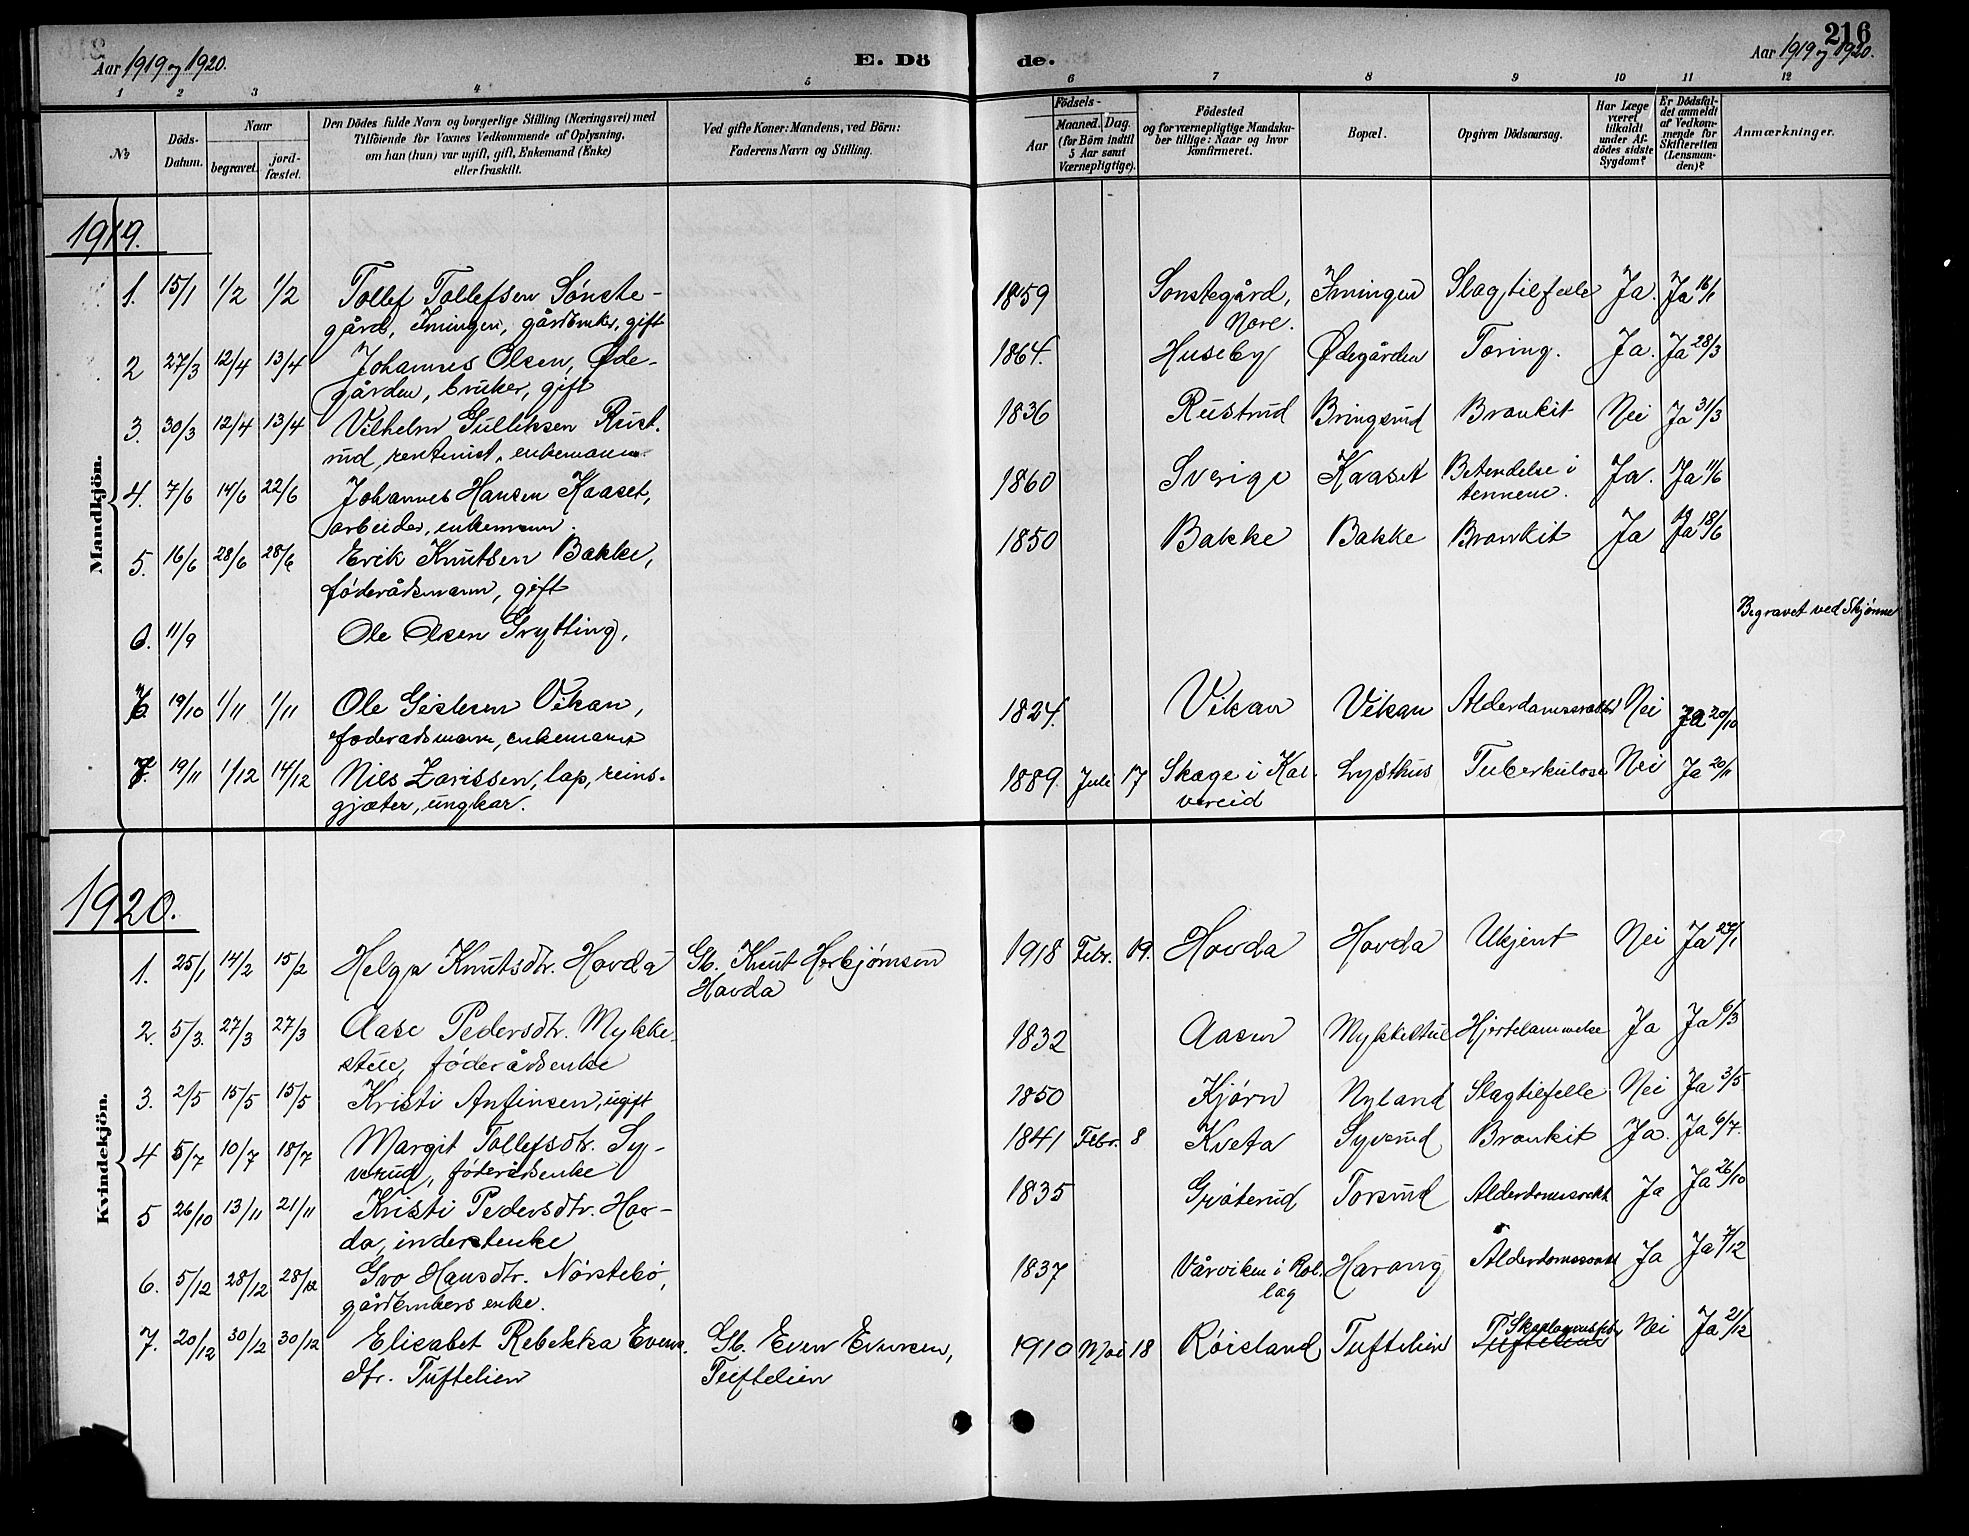 216
Aar 1919 og 1920.
E. Dö
de.
Aar 1919 og 1920.
1 2 3 4 5 6 7 8 9 10 11 12
№
Döds-Datum.
Naar
begravet.
jord-fæstet.
Den Dödes fulde Navn og borgerlige Stilling (Næringsvei) med
Tilföiende for Voxnes Vedkommende af Oplysning,
om han (hun) var ugift, gift, Enkemand (Enke)
eller fraskilt.
Ved gifte Koner: Mandens, ved Börn:
Faderens Navn og Stilling.
Födsels-
Aar
Maaned. Dag.
(for Börn indtil
5 Aar samt
Værnepligtige).
Födested
og for værnepligtige Mandsku-
ber tillige: Naar og hvor
konfirmeret.
Bopæl.
Opgiven Dödsaarsag.
Har Læge
været
tilkaldt
under Af-
dödes sidste
Sygdom?
Er Dödsfal-
det anmeldt
af Vedkom-
mende for
Skifteretten
(Lensman-
den)?
Anmærkninger.
1919.
Mandkjön.
1. 15/1 1/2 1/2 Tollef Tollefsen Sønste- 1859 Sønstegård, Imingen Slagtilfelle Ja. Ja 16/1
gård, Imingen, gårdbruker, gift Nore.
2 27/3 12/4 13/4 Johannes Olsen, Øde- 1864. Huseby Ødegården Tæring. Ja. Ja 28/3
gården, bruker, gift
3. 30/3 12/4 13/4 Vilhelm Gulliksen Rust- 1836 Rustrud Bringsrud Bronkit Nei Ja 31/3
rud, rentenist, enkemann.
4. 7/6 14/6 22/6 Johannes Hansen Kaaset, 1860 Sverige Kaaset Betendelse i Ja. Ja 11/6
arbeider, enkemann. tennene.
5. 16/6 28/6 28/6 Erik Knutsen Bakke, 1850 Bakke Bakke Bronkit Ja Ja 18/6
føderådsmann, gift
6. 11/9 Ole Olsen Grytting, Begravet ved Skjønne
19/10 1/11 1/11 Ole Gislesen Vikan, 1824. Vikan Vikan Alderdomssvakhet Nei Ja 20/10
føderådsmann, enkemann
19/11 1/12 14/12 Nils Larissen, lap, reins- 1889. Juli 17 Skage i Kol- Lysthus Tuberkulose Nei Ja 20/11
gjæter, ungkar. vereid
1920.
Kvindekjön.
1. 25/1 14/2 15/2 Helga Knutsdtr. Hovda Gb. Knut Herbjørnsen 1918 Febr. 19. Hovda Hovda Ukjent Nei Ja 29/1
Hovda
2. 5/3. 27/3 27/3 Aase Pedersdtr. Mykke- 1832 Aasen Mykkestul Hjertelammelse Ja Ja 6/3
stul, føderådsenke
3. 2/5 15/5 15/5 Kristi Anfinsen, ugift 1850 Kjørn Nyland Slagtilfelle Nei Ja 3/5
4 5/7 10/7 18/7 Margit Tollefsdtr. Sy- 1841 Febr. 8 Kveta Syvrud Bronkit Ja. Ja 6/7.
verud, føderådsenke
5 26/10 13/11 21/11 Kristi Pedersdtr. Hov- 1835 Grøterud Torsrud Alderdomssvakh Ja Ja 26/10
da, inderstenke
6. 5/12 28/12 28/12 Gro Hansdtr. Nørstebø, 1837 Vårviken i Rol- Harang Alderdomssvakh Ja Ja 7/12
gårdbrukers enke. lag
7. 20/12 30/12 30/12 Elisabet Rebekka Evens- Gb. Even Evensen, 1910 Mai 18 Røisland Tuftelien Nei Ja 21/12
dtr. Tuftelien Tuftelien